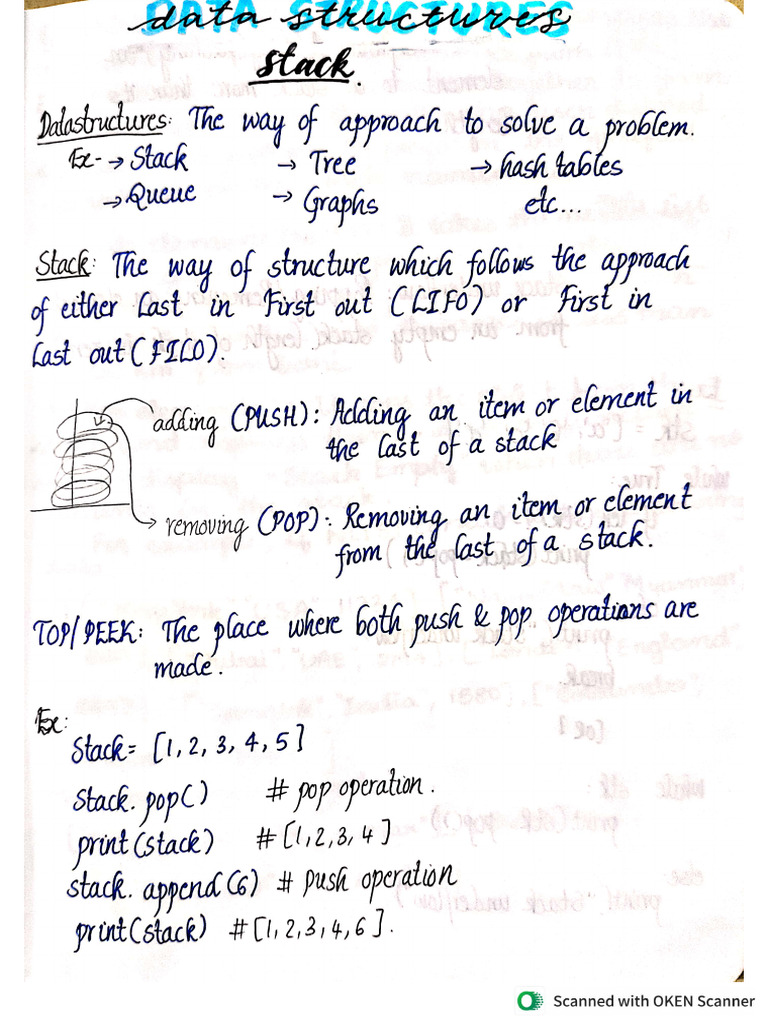 DATA STRUCTURES
data structures
Stack.
Datastructures: The way of approach to solve a problem.
Ex- → Stack → Tree → hash tables
→ Queue → Graphs etc...
Stack: The way of structure which follows the approach
of either Last in First out (LIFO) or First in
Last out (FILO).
adding (PUSH): Adding an item or element in
the last of a stack
removing (POP): Removing an item or element
from the last of a stack.
TOP/PEEK: The place where both push & pop operations are
made.
Ex:
Stack = [1, 2, 3, 4, 5]
Stack. pop() # pop operation.
print(stack) # [1, 2, 3, 4]
stack. append(6) # push operation
print(stack) # [1, 2, 3, 4, 6].
Scanned with OKEN Scanner